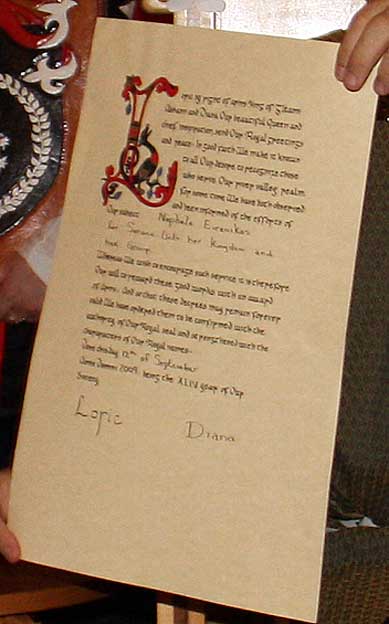 Loric by right of arms King of Gleann
Abhann and Diana Our beautiful Queen and
chief inspiration, send Our Royal greetings
and peace. In good faith We make it known
to all Our desire to recognize those
who serve Our river valley realm.
For some time We have both observed
and been informed of the efforts of
Our subject Nephele
to Service both her Kingdom and
her Group
Whereas We wish to encourage such service it is therefore
Our will to reward these good works with an award
of Arms. And so that these decrees may remain forever
valid We have ordered them to be confirmed with the
authority of Our Royal seal and be perscribed with the
characters of Our Royal names-
Done on day 12th of September
Anno Domini 2009, being the XLIV year of Our
Society
Loric Diana